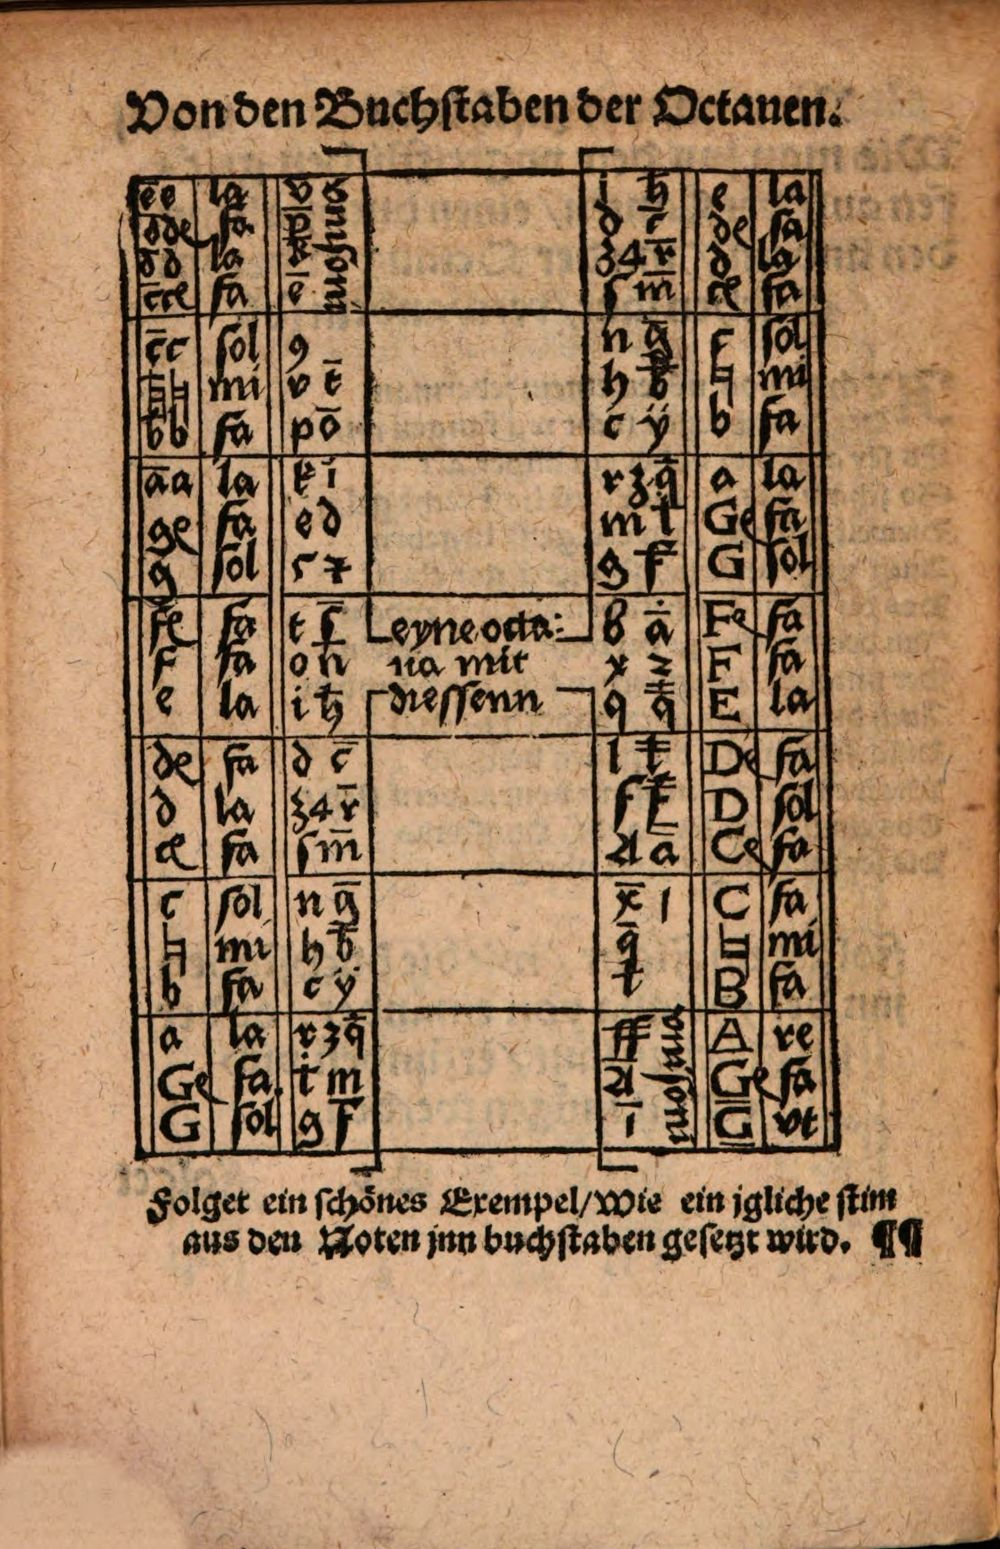 Von den Buchstaben der Octauen.
e̅e̅ la v̅ i h̅ e la
d̅de fa p̅ d c̅ de fa
d̅d la k̅ ʒ4 r̅ d la
c̅ce fa e̅ s m̅ ce fa
c̅c sol 9 n g̅ c sol
♮♮ mi v t̅ h b̅ ♮ mi
b̅b fa p o̅ c ÿ b fa
a̅a la k i̅ r ʒ q̅ a la
ge fa e d m t̅ Ge fa
g sol c z g f̅ G sol
fe fa t s̅ eyne octa: b a̅ Fe fa
f fa o n̅ ua mit x z F fa
e la i h̅ diessenn q q̅ E la
de fa d c̅ l t̅ De fa
d la ʒ4 r̅ f f̅ D sol
ce fa s m̅ A a̅ Ce fa
c sol n g̅ x̅ 1 C fa
♮ mi h b̅ q̅ ♮ mi
b fa c ÿ t B fa
a la r ʒ q̅ ff A re
Ge fa t̅ m A̅ Ge fa
G sol g f̅ i̅ G vt
Folget ein schönes Exempel/Wie ein jgliche stim
aus den Noten jnn buchstaben gesetzt wird. ¶¶